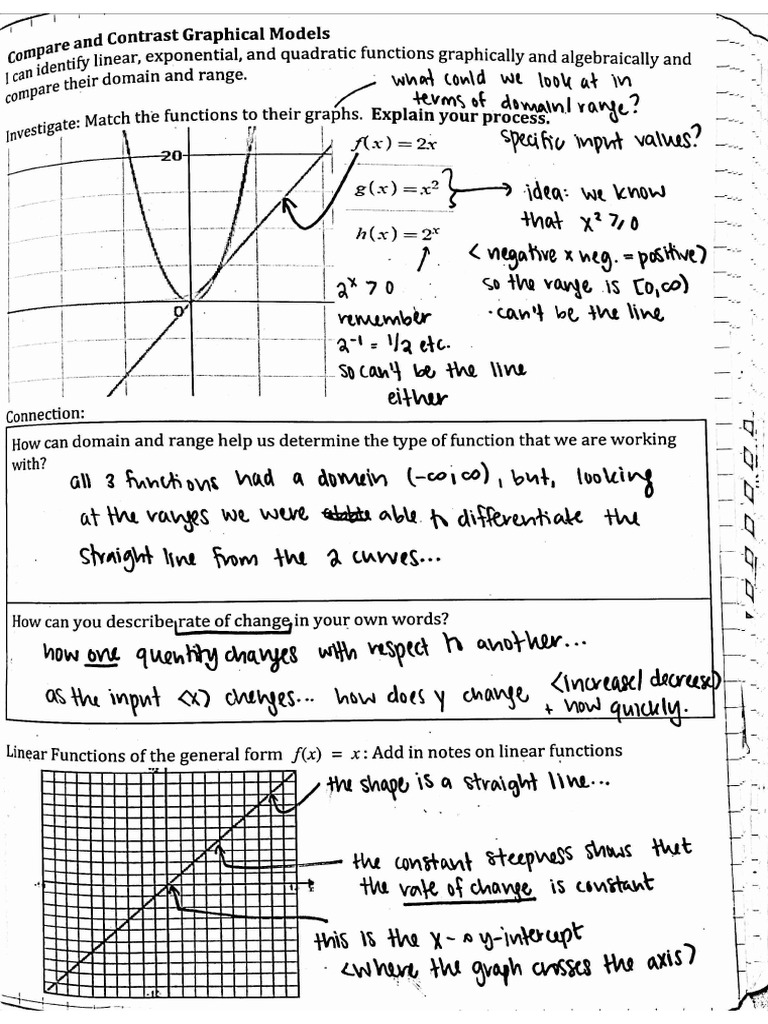 Compare and Contrast Graphical Models
I can identify linear, exponential, and quadratic functions graphically and algebraically and
compare their domain and range.
what could we look at in
terms of domain/range?
Investigate: Match the functions to their graphs. Explain your process.
specific input values?
20
f(x) = 2x
g(x) = x²
idea: we know
that x² ≥ 0
h(x) = 2ˣ
(negative x neg. = positive)
so the range is [0,∞)
·can't be the line
0
2ˣ > 0
remember
2⁻¹ = 1/2 etc.
so can't be the line
either
Connection:
How can domain and range help us determine the type of function that we are working
with?
all 3 functions had a domain (-∞,∞), but, looking
at the ranges we were able to differentiate the
straight line from the 2 curves...
How can you describe rate of change in your own words?
how one quantity changes with respect to another...
as the input (x) changes... how does y change (increase/decrease)
+ how quickly.
Linear Functions of the general form f(x) = x: Add in notes on linear functions
the shape is a straight line...
the constant steepness shows that
the rate of change is constant
this is the x- & y-intercept
(where the graph crosses the axis)